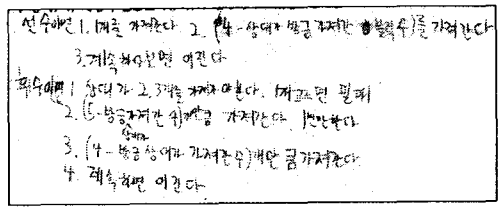 선수이면 1. 1개를 가져간다 2. (4-상대가 방금 가져간 블럭수)를 가져간다
3. 계속하면 이긴다
후수이면 1. 상대가 2,3개를 가져가야한다. 1개 필패
2. (5-방금가져간 수)만큼 가져간다. 1번만한다
3. (4-방금 상대가 가져간수) 가져간다
4. 계속하면 이긴다